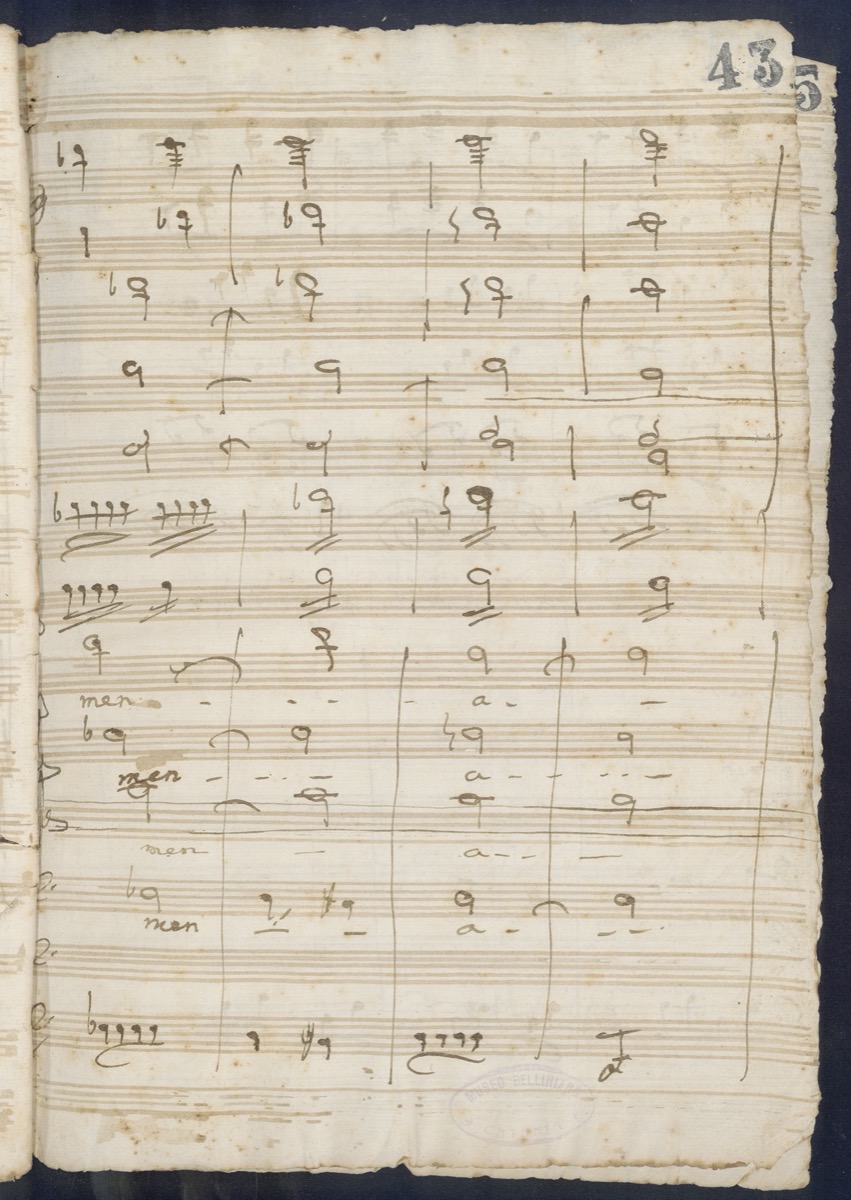 43
5
men - - - - a - -
men - - - - a - - - - -
men - a - - -
men - - a - - - -
MUSEO BELLINIANO